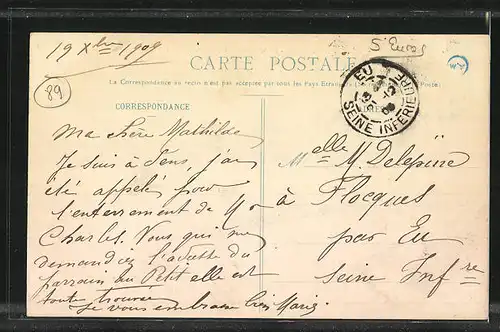 19 Xbre 1909
S Eures
CARTE POSTALE
La Correspondance au recto n'est pas acceptée par tous les Pays Etrangers
Poste)
89
CORRESPONDANCE
EU
SEINE INFERIEURE
Ma chère Mathilde
Je suis à Sens, j'ai
été appelée pour
l'enterrement de Mr
Charles. Vous qui me
demandiez l'adresse du
parrain du Petit elle est
toute trouvée
Je vous embrasse bien Marie
Melle M Delépine
à Flocques
par Eu
Seine Infre